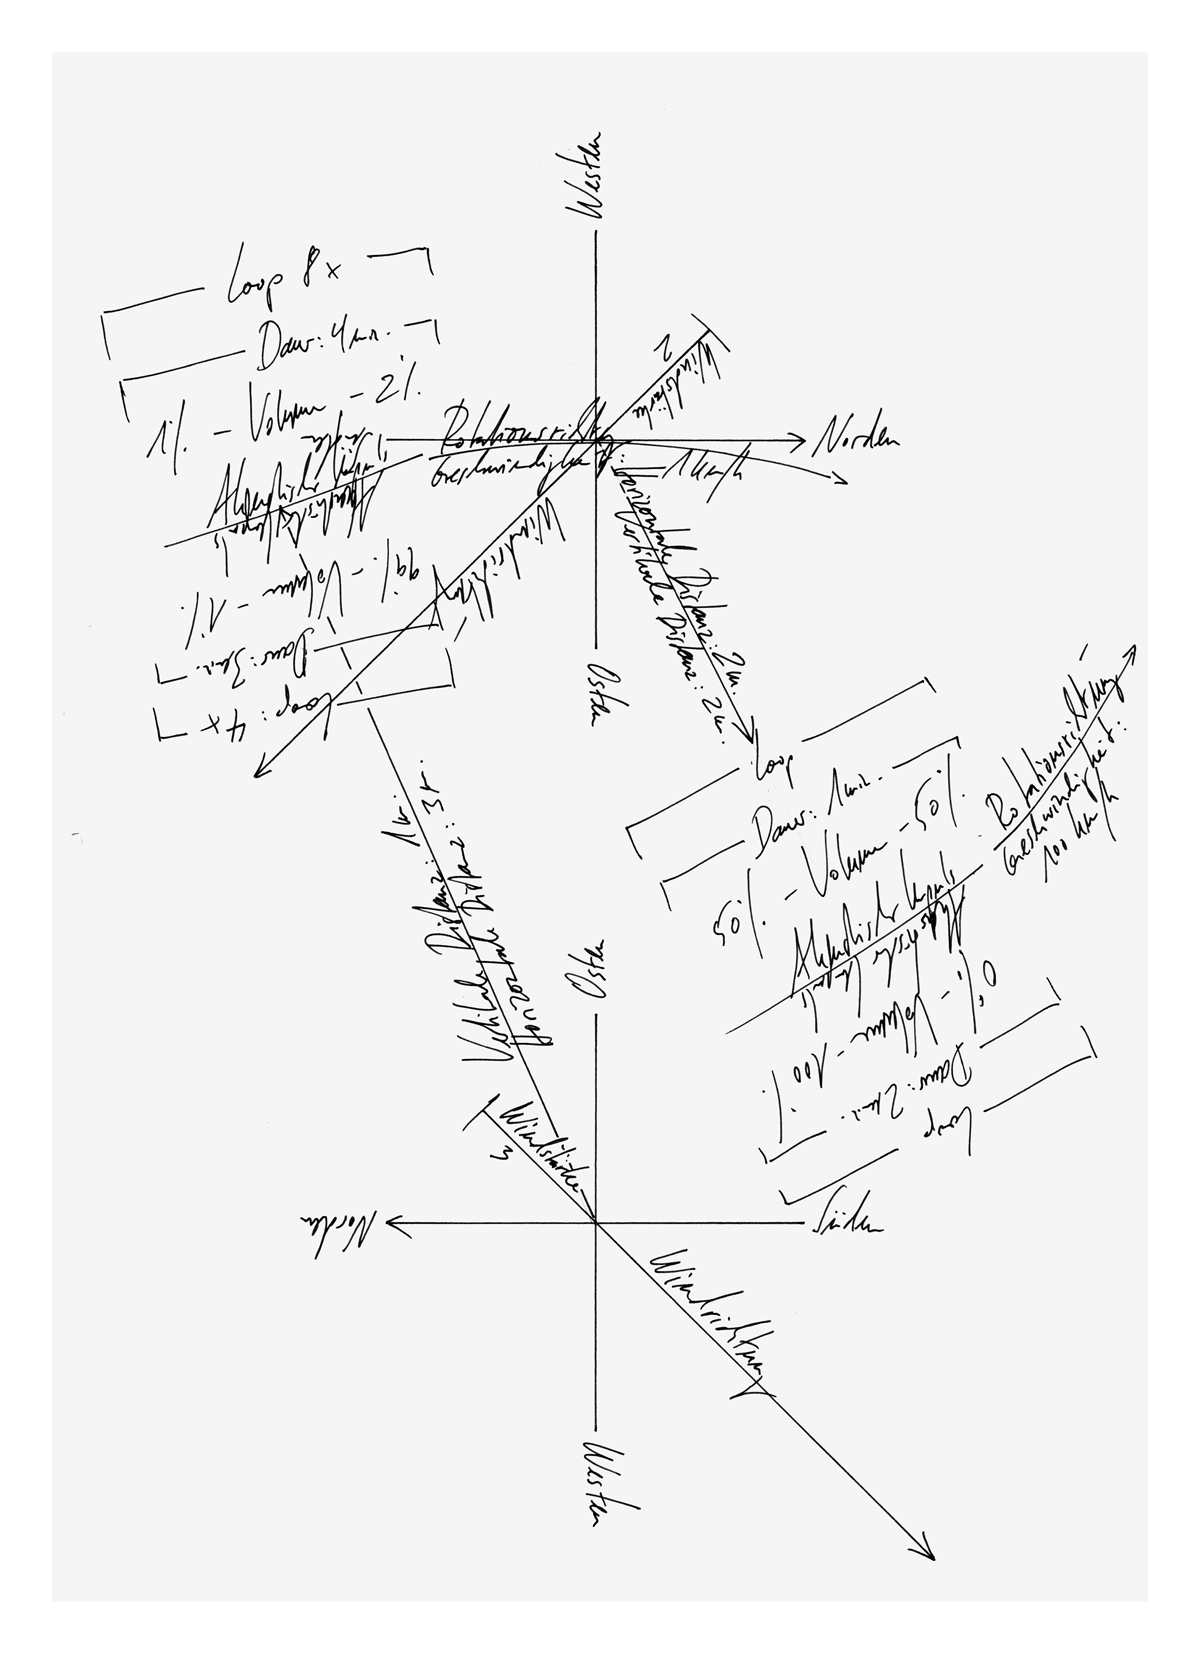 Westen
Loop 8 x
Dauer: 4 min.
1% - Volumen - 2%
Akustischer Impuls
Akustischer Impuls
99% - Volumen - 1%
Dauer: 3 min.
Loop: 4 x
Rotationsrichtung
Geschwindigkeit:
1 km/h
Süden
Norden
2
Windstärke
Windrichtung
Horizontale Distanz: 2 m.
Vertikale Distanz: 2 m.
Osten
Loop
Dauer: 1 min.
50% - Volumen - 50%
Akustischer Impuls
Akustischer Impuls
0% - Volumen - 100%
Dauer: 2 min.
Loop
Rotationsrichtung
Geschwindigkeit:
100 km/h
Vertikale Distanz: 1 m.
Horizontale Distanz: 3 m.
Osten
Windstärke
3
Norden
Süden
Windrichtung
Westen